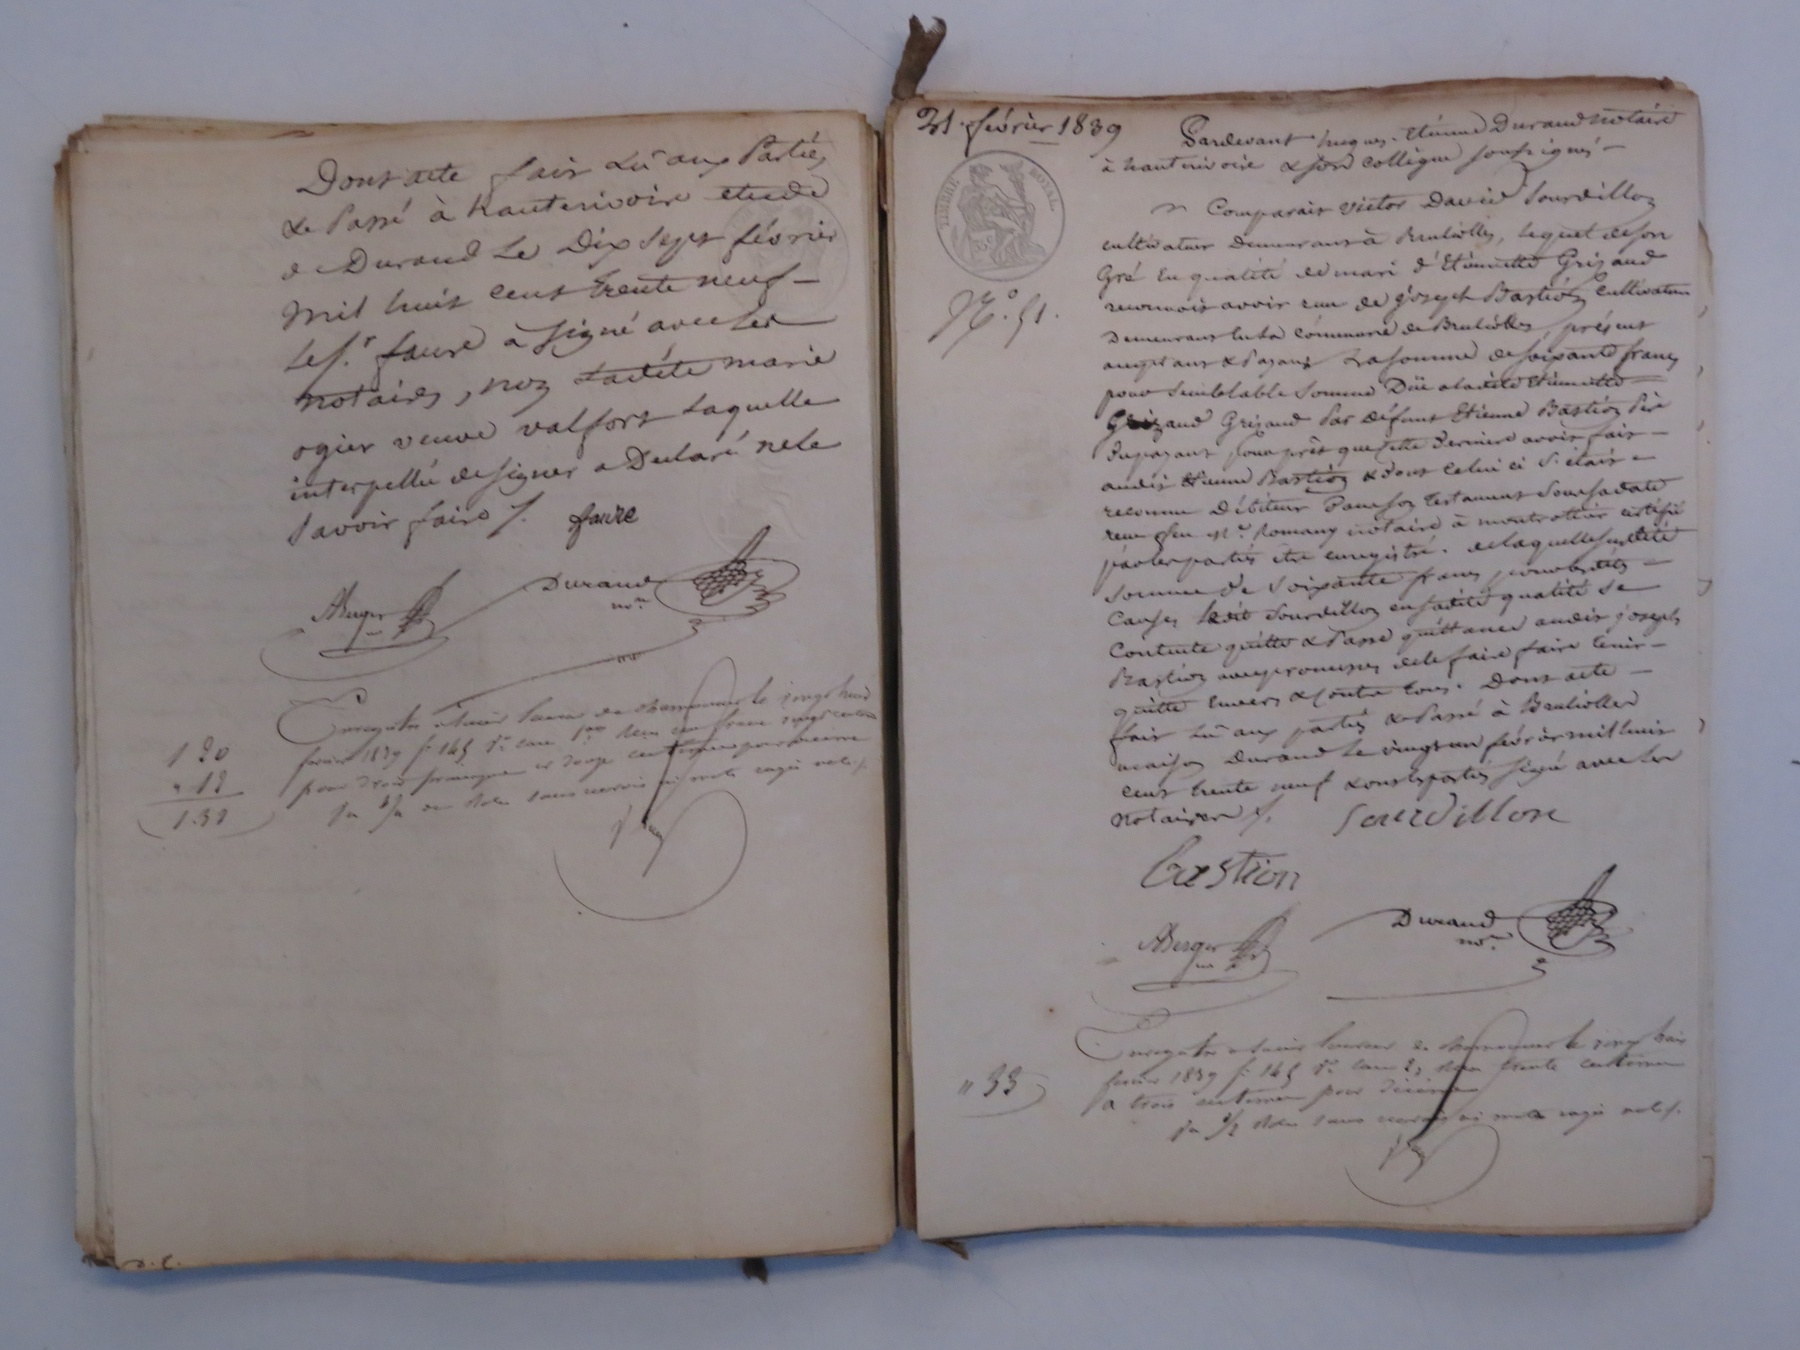 Dont acte fait Lu aux Parties
& Passé à hauterivoire etude
de Durand Le Dix Sept février
Mil huit cent trente neuf —
Le s.r faure a signé avec les
notaires, non Ladite marie
ogier veuve valfort Laquelle
interpellée de signer a Déclaré ne le
Savoir faire /. faure
ABerger Durand
no.re
Enregistré à Saint Laurent de Chamousset le vingt huit
février 1839 f.o 145 r.o case 1.re reçu un franc vingt centimes
pour droit principal et douze centimes pour décime
1 20
" 12
1.32
21 février 1839
Pardevant hugues Etienne Durand notaire
à hauterivoire & son collègue soussignés —
TIMBRE ROYAL.
N.o 51.
Comparait victor David Sourdillon
cultivateur Demeurant à Brullioles, lequel de son
Gré En qualité de mari d'Etiennette Grizaud
reconnait avoir reçu de joseph Bastion Cultivateur
Demeurant en la commune de Brullioles, présent
acceptant & Payant La somme de soixante francs
pour semblable somme Due à ladite Etiennette
Grizaud Grizaud Par Défunt Etienne Bastion Père
Du payant pour prêt que cette Dernière avoit fait —
audit Etienne Bastion & dont Celui ci S'étoit
reconnu Débiteur Par son Testament sous sa date
reçu feu M.e Romany notaire à montrotier certifié
par les parties être enregistré. de laquelle susdite
somme de soixante francs pour lesdites
Causes ledit Sourdillon en sadite qualité se
Contente quitte & Passe quittance audit joseph
Bastion avec promesses de le faire faire tenir —
quitte Envers & contre tous. Dont acte —
fait Lu aux parties & Passé à Brullioles
maison Durand Le vingt un février mil huit
cent trente neuf & ont les parties signé avec les
notaires /. Sourdillon
bastion
ABerger Durand
no.re
Enregistré à Saint Laurent de Chamousset le vingt huit
février 1839 f.o 145 r.o case 2, reçu trente centimes
& trois centimes pour décime
" 33